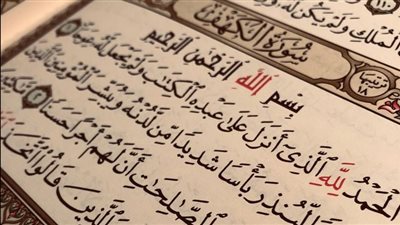 ٱلْمُلْكِ وَلَمْ يَكُن لَّهُۥ
سُورَةُ الكَهْفِ
بِسْمِ ٱللَّهِ ٱلرَّحْمَٰنِ ٱلرَّحِيمِ
ٱلْحَمْدُ لِلَّهِ ٱلَّذِىٓ أَنزَلَ عَلَىٰ عَبْدِهِ ٱلْكِتَٰبَ وَلَمْ يَجْعَل لَّهُۥ عِوَجَا
لِّيُنذِرَ بَأْسًا شَدِيدًا مِّن لَّدُنْهُ وَيُبَشِّرَ ٱلْمُؤْمِنِينَ ٱلَّذِينَ
ٱلصَّٰلِحَٰتِ أَنَّ لَهُمْ أَجْرًا حَسَنًا
ٱلَّذِينَ قَالُوا۟ ٱتَّخَذَ